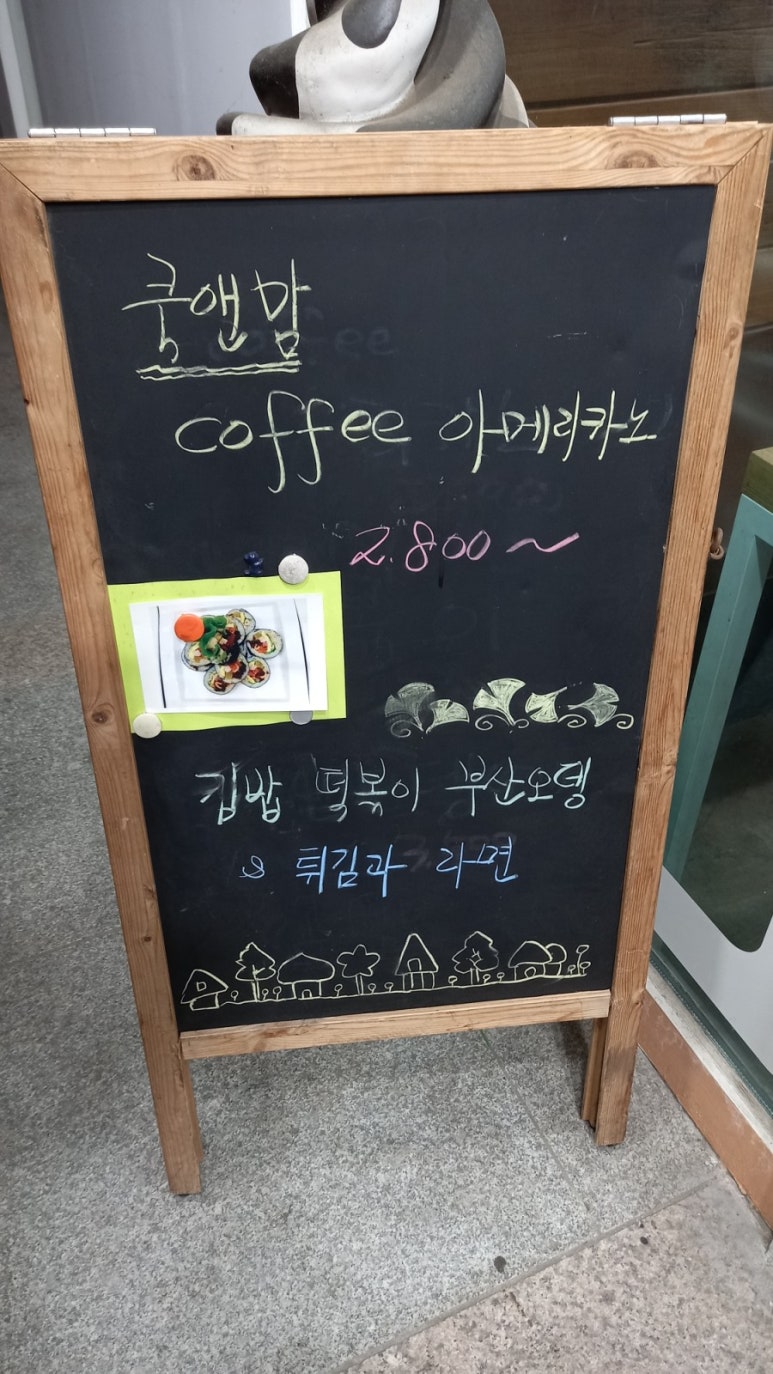 쿰앤맘
coffee 아메리카노
2.800~
김밥 떡볶이 부산오뎅
& 튀김과 라면